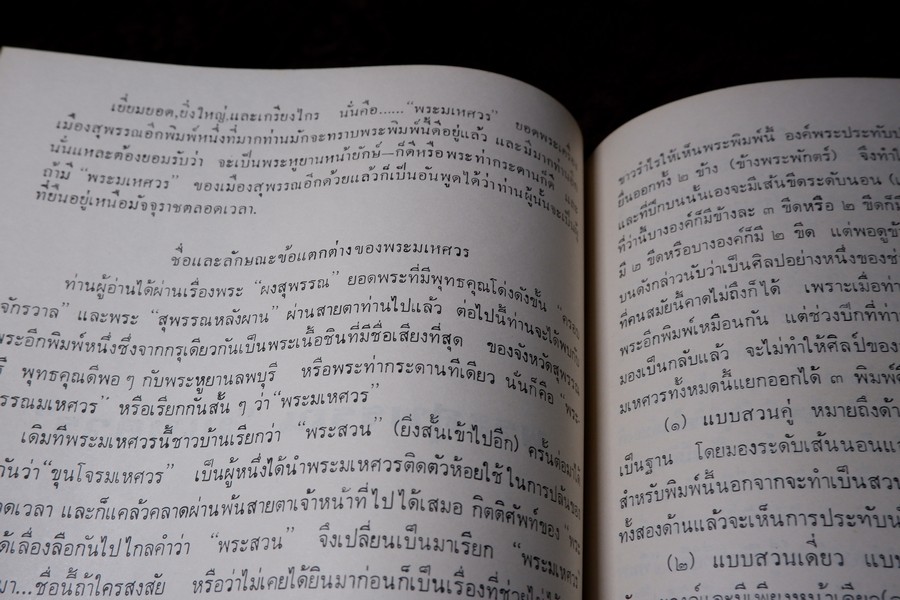 เยี่ยมยอด,ยิ่งใหญ่,และเกรียงไกร นั่นคือ......“พระมเหศวร” ยอดพระเครื่อง
เมืองสุพรรณอีกพิมพ์หนึ่งที่มากท่านมักจะทราบพระพิมพ์นี้ดีอยู่แล้ว และมีมากท่านอีก
นั่นแหละต้องยอมรับว่า จะเป็นพระหูยานหน้ายักษ์–ก็ดีหรือพระท่ากระดานก็ดี และ
ถ้ามี “พระมเหศวร” ของเมืองสุพรรณอีกด้วยแล้วก็เป็นอันพูดได้ว่าท่านผู้นั้นจะเป็นผู้
ที่ยืนอยู่เหนือมัจจุราชตลอดเวลา.
ชื่อและลักษณะข้อแตกต่างของพระมเหศวร
ท่านผู้อ่านได้ผ่านเรื่องพระ “ผงสุพรรณ” ยอดพระที่มีพุทธคุณโด่งดังขั้น “ครอบ
จักรวาล” และพระ “สุพรรณหลังผาน” ผ่านสายตาท่านไปแล้ว ต่อไปนี้ท่านจะได้พบกับ
พระอีกพิมพ์หนึ่งซึ่งจากกรุเดียวกันเป็นพระเนื้อชินที่มีชื่อเสียงที่สุด ของจังหวัดสุพรรณ
รี พุทธคุณดีพอ ๆ กับพระหูยานลพบุรี หรือพระท่ากระดานทีเดียว นั่นก็คือ “พระ
รรณมเหศวร” หรือเรียกกันสั้น ๆ ว่า “พระมเหศวร”
เดิมทีพระมเหศวรนี้ชาวบ้านเรียกว่า “พระสวน” (ยิ่งสั้นเข้าไปอีก) ครั้นต่อมาได้
กันว่า “ขุนโจรมเหศวร” เป็นผู้หนึ่งได้นำพระมเหศวรติดตัวห้อยใช้ในการปล้นสะ
ดเวลา และก็แคล้วคลาดผ่านพ้นสายตาเจ้าหน้าที่ไปได้เสมอ กิตติศัพท์ของ “พระ
ด้เลื่องลือกันไปไกลคำว่า “พระสวน” จึงเปลี่ยนเป็นมาเรียก “พระมเหศวร”
มา...ชื่อนี้ถ้าใครสงสัย หรือว่าไม่เคยได้ยินมาก่อนก็เป็นเรื่องที่ช่วยไม่ได้
ขาวรำไรให้เห็นพระพิมพ์นี้ องค์พระประทับ
ยื่นออกทั้ง ๒ ข้าง (ข้างพระพักตร์) จึงทำ
และที่ปีกบนนั้นเองจะมีเส้นขีดระดับนอน
ที่ว่านี้บางองค์ก็มีข้างละ ๓ ขีดหรือ ๒ ขีดก็มี
มี ๒ ขีดหรือบางองค์ก็มี ๒ ขีด แต่พอดูข้า
บนดังกล่าวนับว่าเป็นศิลปอย่างหนึ่งของช่
ที่คนสมัยนี้คาดไม่ถึงก็ได้ เพราะเมื่อท่า
พระอีกพิมพ์เหมือนกัน แต่ช่วงปีกที่ท่า
มองเป็นกลับแล้ว จะไม่ทำให้ศิลป์ของ
มเหศวรทั้งหมดนี้แยกออกได้ ๓ พิมพ์
(๑) แบบสวนคู่ หมายถึงด้า
เป็นฐาน โดยมองระดับเส้นนอนแ
สำหรับพิมพ์นี้นอกจากจะทำเป็นสวน
ทั้งสองด้านแล้วจะเห็นการประทับนั
(๒) แบบสวนเดี่ยว แบบ